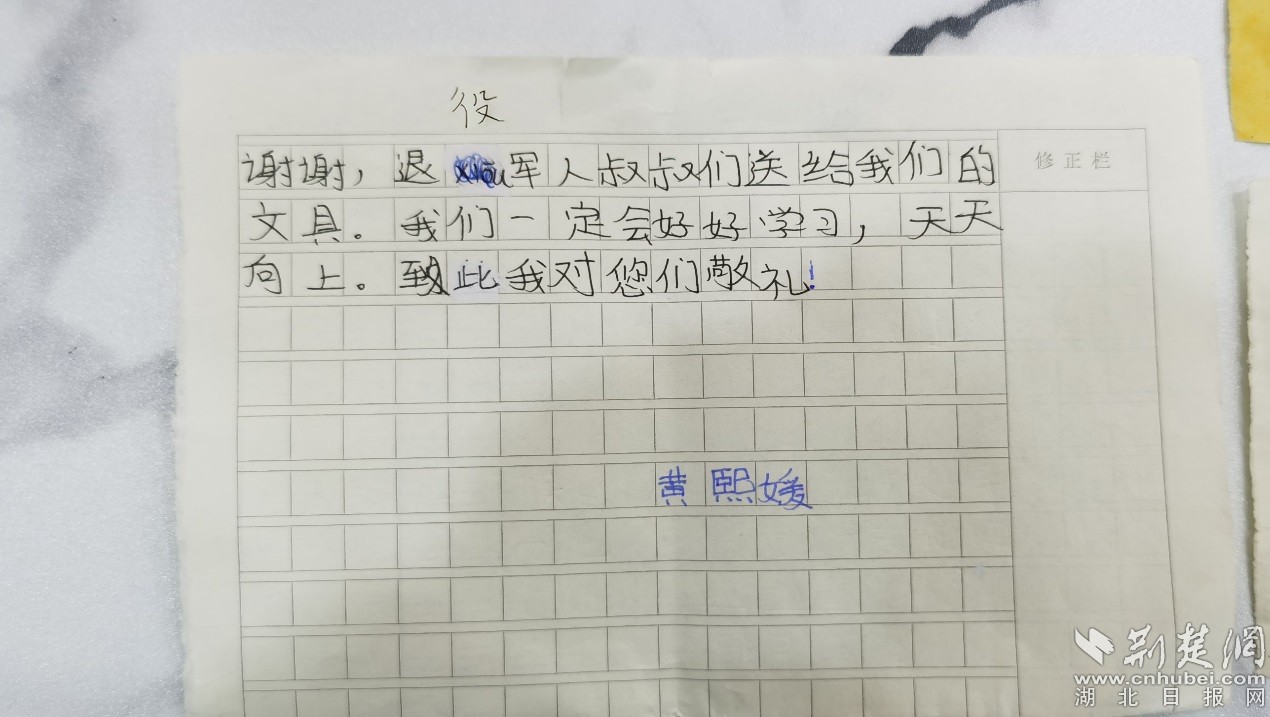 役
谢谢，退军人叔叔们送给我们的
修正栏
文具。我们一定会好好学习，天天
向上。致此我对您们敬礼！
黄熙媛
荆楚网
www.cnhubei.com
湖北日报网